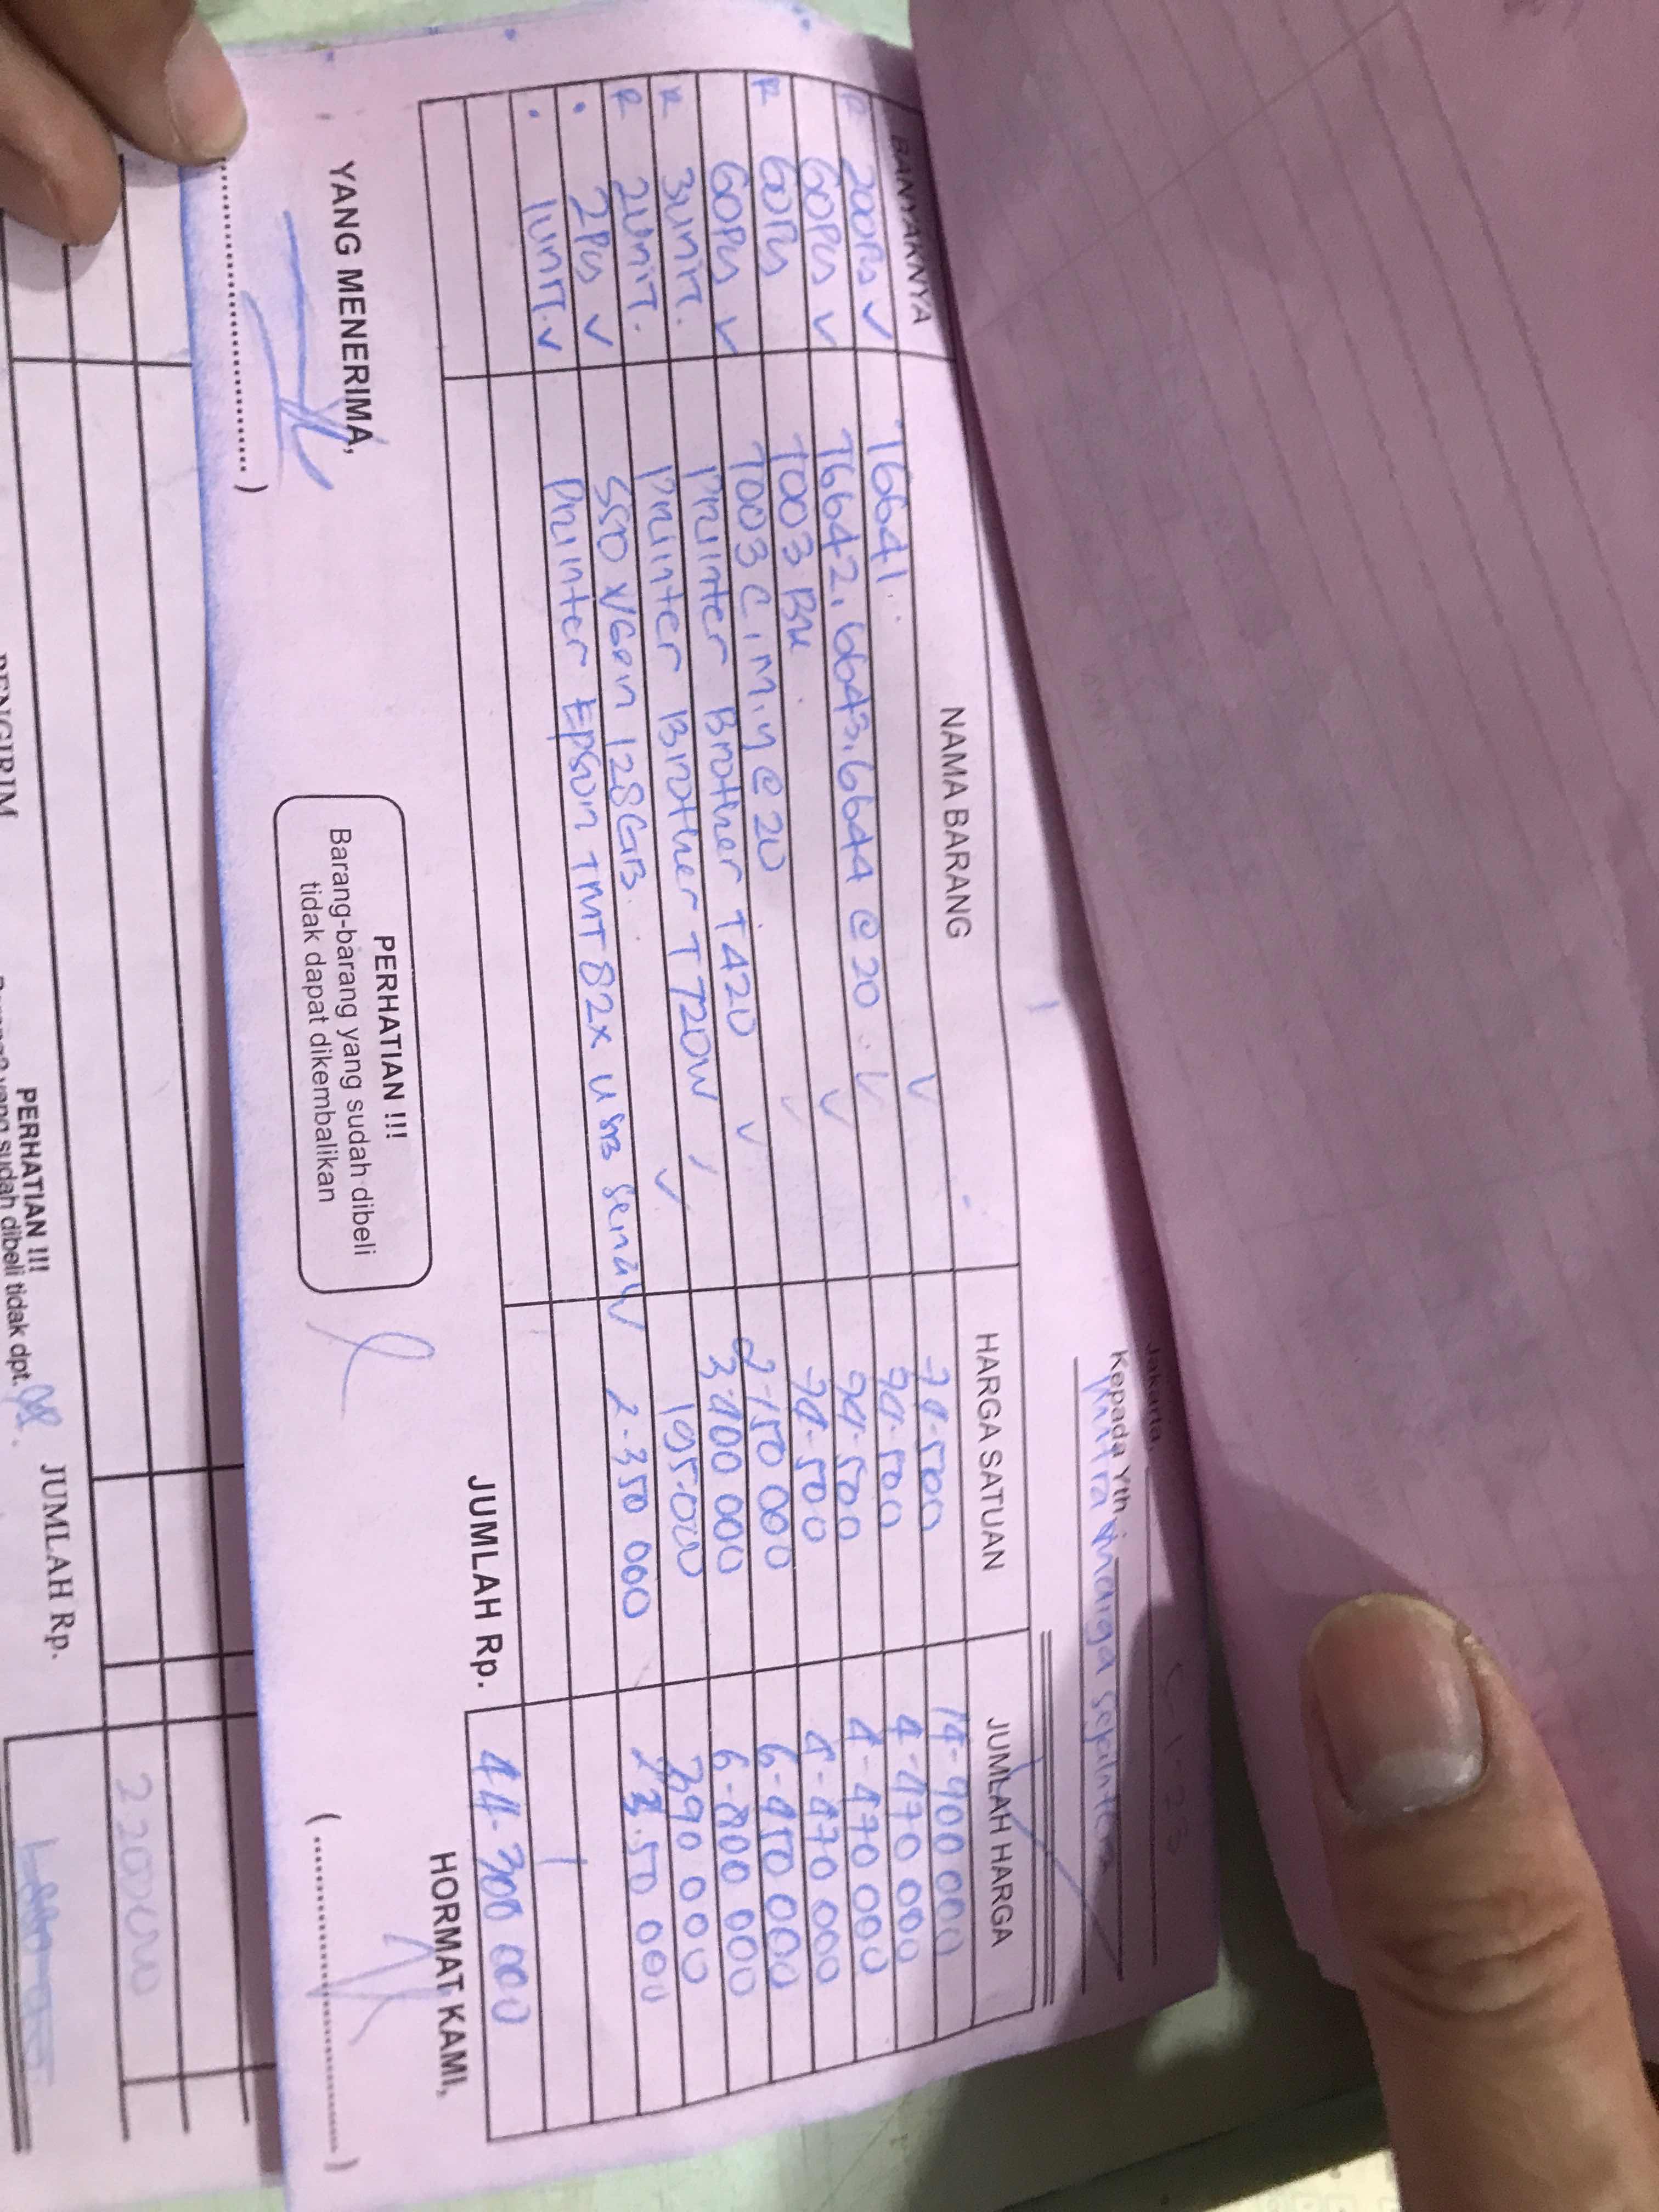 Jakarta,
Kepada Yth.
BANYAKNYA NAMA BARANG HARGA SATUAN JUMLAH HARGA
R 200Pcs ✓ T6641. 74.500 14.900 000
60Pcs ✓ T6642, 6643, 6644 @ 20 74.500 4.470 000
R 60Pcs T003 BK. 74.500 4.470 000
60Pcs ✓ T003 C, M, y @ 20 74.500 4.470 000
R 3unit. Printer Brother T420 2.150 000 6.450 000
R 2unit. Printer Brother T720W 3.400 000 6.800 000
2Pcs ✓ SSD VGen 128GB. 195.000 390 000
1unit. ✓ Printer Epson TMT82X USB Serial 2.350 000 2.350 000
JUMLAH Rp. 44.300 000
YANG MENERIMA,
HORMAT KAMI,
PERHATIAN !!!
Barang-barang yang sudah dibeli
tidak dapat dikembalikan
(....................)
220000
PENGIRIM
PERHATIAN !!!
yang sudah dibeli tidak dpt.
JUMLAH Rp.